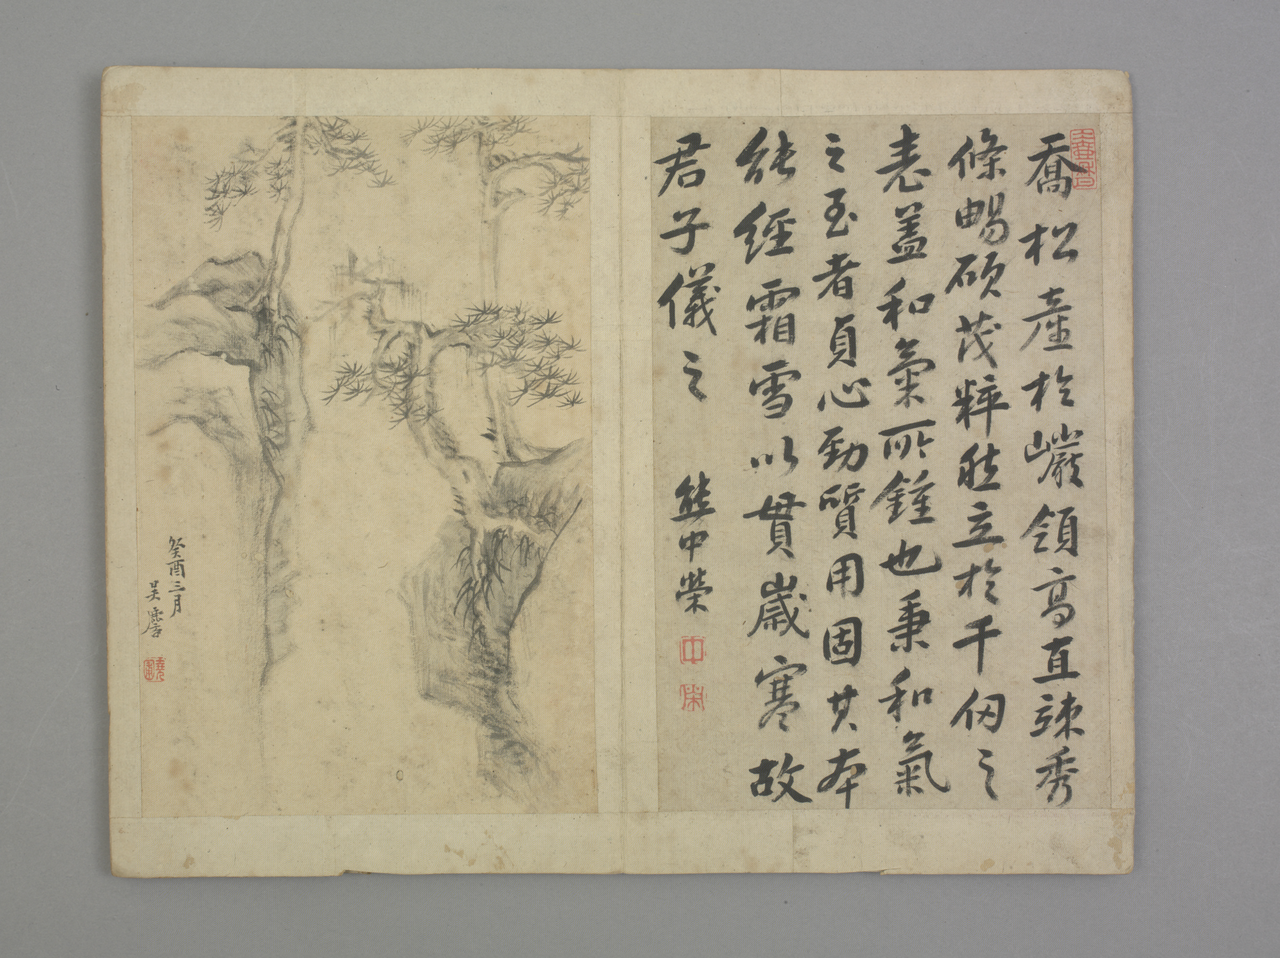 喬松產於巖領高直竦秀
條暢碩茂粹然立於千仞之
表蓋和氣所鍾也秉和氣
之至者貞心勁質用固其本
能經霜雪以貫歲寒故
君子儀之
熊中榮
癸酉三月
吳